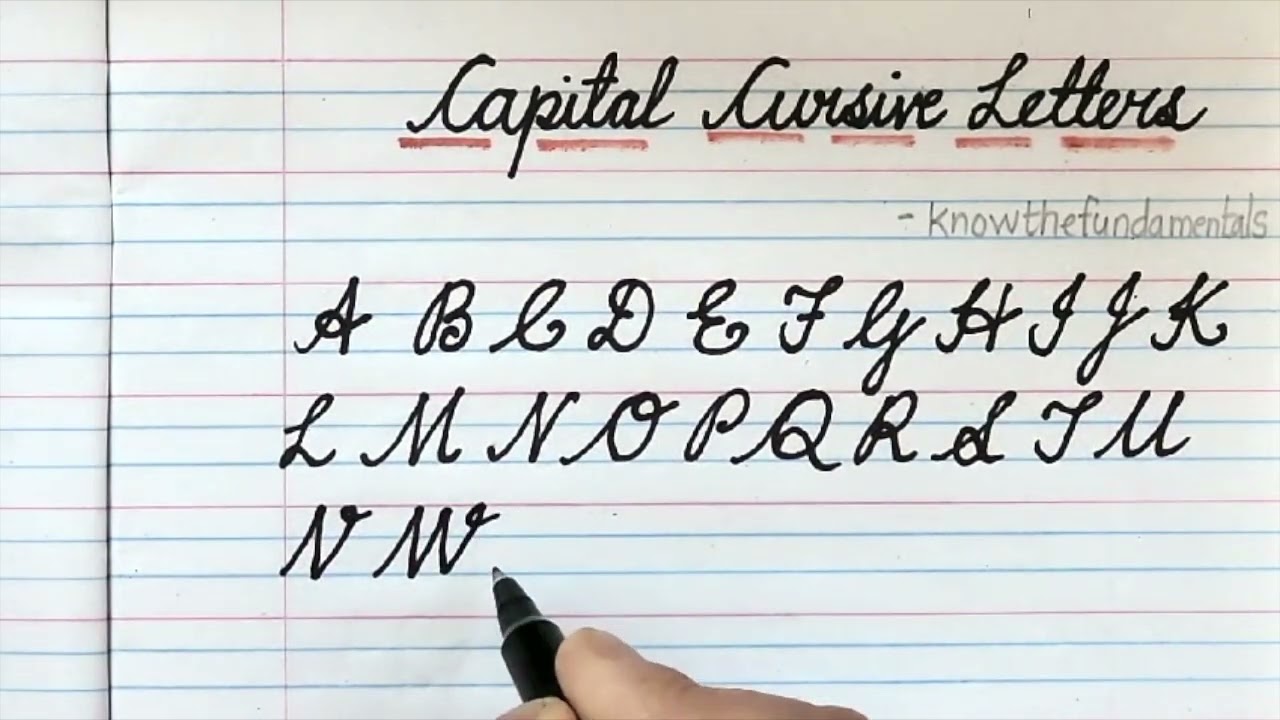 Capital Cursive Letters
- knowthefundamentals
A B C D E F G H I J K
L M N O P Q R S T U
V W